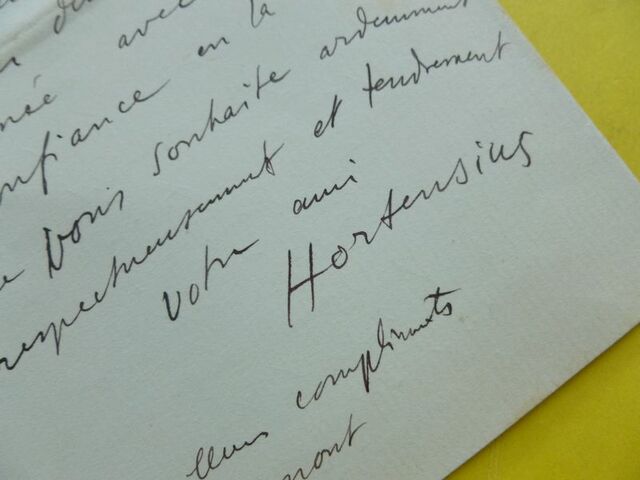 avec
née
confiance en la
Vous souhaite ardemment
respectueusement et tendrement
votre ami
Hortensius
compliments
mont